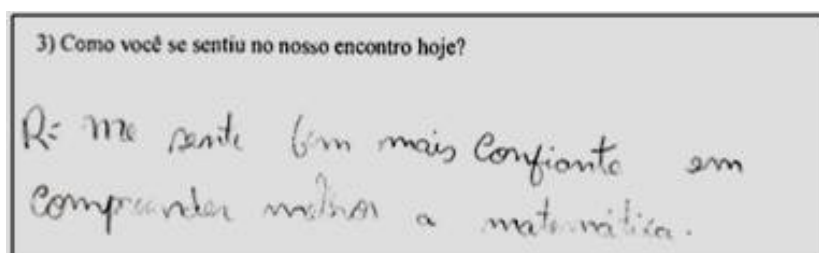 3) Como você se sentiu no nosso encontro hoje?
R: Me senti bem mais confiante em
compreender melhor a matemática.